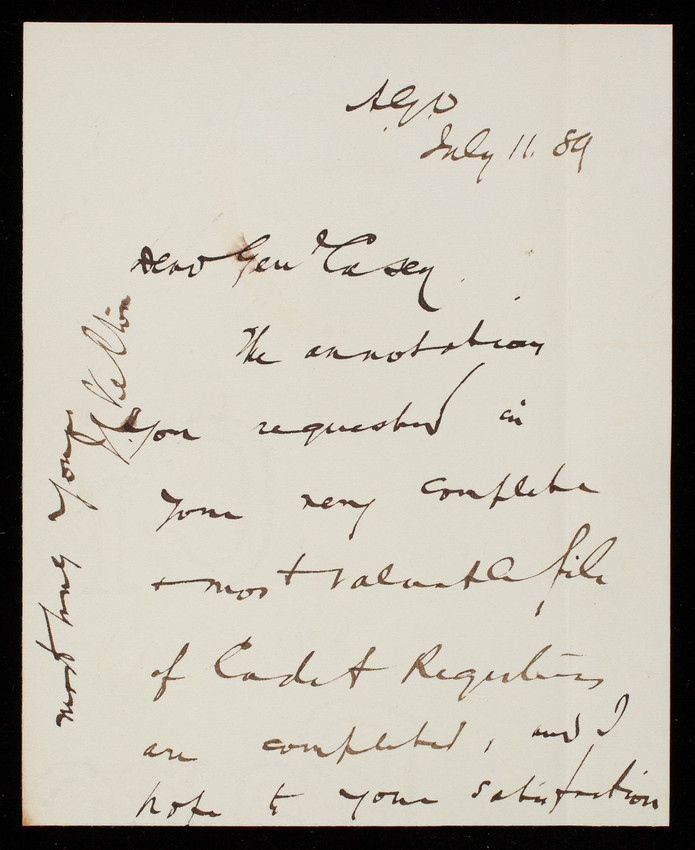 A.G.O
July 11. 89
Dear Genl Casey.
The annotations
you requested in
your very complete
+ most valuable file
of Cadet Registers
are completed, and I
hope to your satisfaction
most truly yours
J. C. Kelton